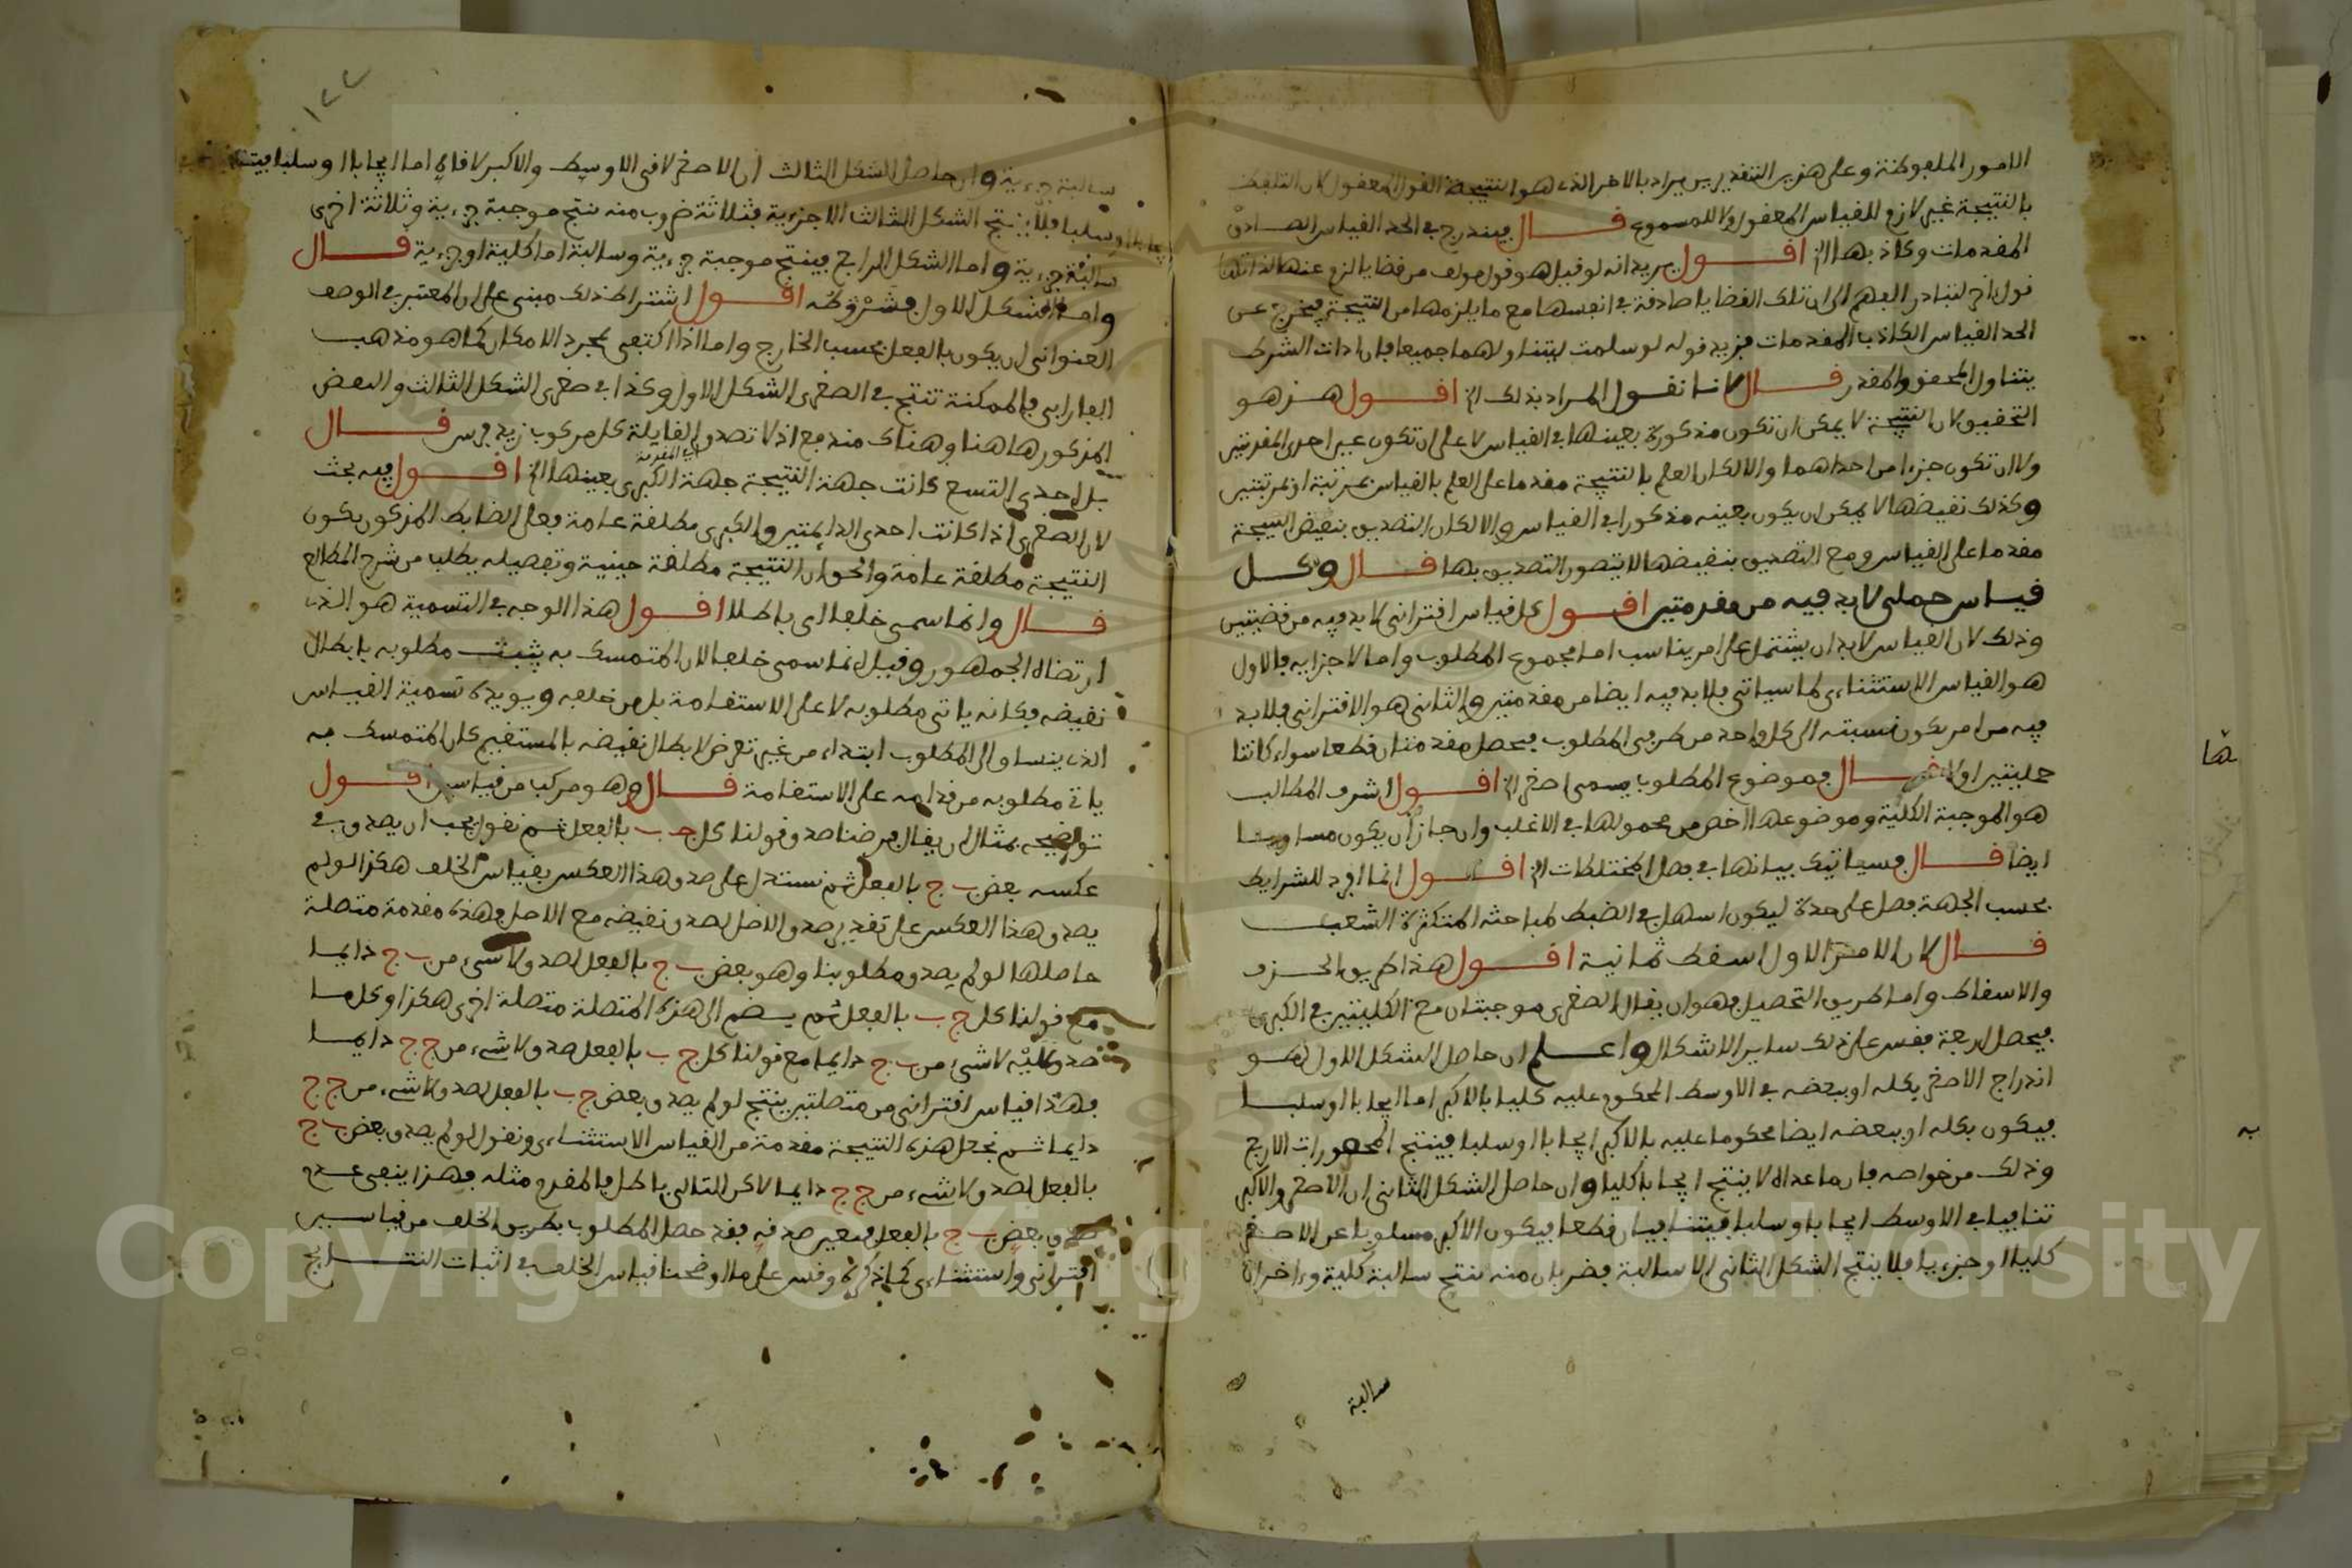 الامور الملفوظة وعلى هذين التقديرين يراد بالاخر الذي هو النتيجة القول المعقول لان التلفظ
بالنتيجة غير لازم للقياس المعقول ولا للمسموع قال فيندرج في الحد القياس الصادق
المقدمات وكاذبها الخ اقول يريد انه لو قيل هو قول مولف من قضايا لزم عنها لذاتها
قول اخر لتبادر الفهم الى ان تلك القضايا صادقة في انفسها مع ما يلزمها من النتيجة فيخرج عن
الحد القياس الكاذب المقدمات فزيد قوله لو سلمت ليتناولهما جميعا فان ادات الشرط
يتناول المحقق والمقدر قال لانا نقول المراد بذلك الخ اقول هذ هو
التحقيق لان النتيجة لا يمكن ان تكون مذكورة بعينها في القياس لا على ان تكون عين احدى المقدمتين
ولا ان تكون جزءا من احداهما والا لكان العلم بالنتيجة مقدما على العلم بالقياس بمرتبة او بمرتبتين
وكذلك نقيضها لا يمكن ان يكون بعينه مذكورا في القياس والا لكان التصديق بنقيض النتيجة
مقدما على القياس ومع التصديق بنقيضها لا يتصور التصديق بها قال وكل
قياس حملي لا بد فيه من مقدمتين اقول كل قياس اقتراني لا بد فيه من قضيتين
وذلك لان القياس لا بد ان يشتمل على امر يناسب اما مجموع المطلوب واما لاجزايه فالاول
هو القياس الاستثناءي كما سياتي فلا بد فيه ايضا من مقدمتين والثاني هو الاقتراني فلا بد
فيه من امر يكون نسبته الى كل واحد من طرفي المطلوب فيحصل مقدمتان قطعا سواء كانتا
حمليتين او لا قال فموضوع المطلوب يسمى اصغر الخ اقول اشرف المطالب
هو الموجبة الكلية وموضوعها اخص من محمولها في الاغلب وان جاز ان يكون مساويا
ايضا قال فسياتيك بيانها في فصل المختلطات الخ اقول انما افرد للشرايط
بحسب الجهة فصل على حدة ليكون اسهل في الضبط لمباحثه المتكثرة الشعب
قال لان الامر الاول اسقط ثمانية اقول هذا طريق الحذف
والاسقاط واما طريق التحصيل فهو ان يقال الصغرى موجبتان مع الكليتين في الكبرى
فيحصل اربعة فقس على ذلك ساير الاشكال واعلم ان حاصل الشكل الاول هو
اندراج الاصغر بكله او ببعضه في الاوسط المحكوم عليه كليا بالاكبر اما ايجابا او سلبا
فيكون بكله او ببعضه ايضا محكوما عليه بالاكبر ايجابا او سلبا فينتج المحصورات الاربع
وذلك من خواصه فان ما عداه لا ينتج ايجابا كليا وان حاصل الشكل الثاني ان الاصغر والاكبر
تنافيا في الاوسط ايجابا وسلبا فيتنافيان قطعا فيكون الاكبر مسلوبا عن الاصغر
كليا او جزءيا فلا ينتج الشكل الثاني الا سالبة فضربان منه ينتج سالبة كلية واخران
سالبة
ها
به
١٢٢
سالبة جزءية وان حاصل الشكل الثالث ان الاصغر لاقى الاوسط والاكبر لاقاه اما ايجابا او سلبا
وسلبا فلا ينتج الشكل الثالث الا جزءية فثلاثة ضروب منه ينتج موجبة جزءية وثلاثة اخرى
سالبة جزءية واما الشكل الرابع فينتج موجبة جزءية وسالبة اما كلية او جزءية قال
واما الشكل الاول فشروطه اقول اشتراط ذلك مبنى على ان المعتبر في الوصف
العنواني ان يكون بالفعل بحسب الخارج واما اذا اكتفى بمجرد الامكان كما هو مذهب
الفارابي فالممكنة تنتج في الصغرى الشكل الاول وكذا في صغرى الشكل الثالث والبعض
المذكور هاهنا وهناك مندفع اذ لا تصدق القايلة كل مركوب زيد فرس قال
بل احدى التسع كانت جهة النتيجة جهة الكبرى بعينها الخ اقول فيه بحث
اي المقدمة
لان الصغرى اذا كانت احدى الدايمتين والكبرى مطلقة عامة فعلى الضابط المذكور يكون
النتيجة مطلقة عامة والحق ان النتيجة مطلقة حينية وتفصيله يطلب من شرح المطالع
قال وانما سمى خلفا اى باطلا اقول هذا الوجه في التسمية هو الذي
ارتضاه الجمهور وقيل انما سمى خلفا لان المتمسك به يثبت مطلوبه بابطال
نقيضه فكانه ياتى مطلوبه لا على الاستقامة بل من خلفه ويويده تسمية القياس
الذي ينساق الى المطلوب ابتداء من غير تعرض لابطال نقيضه بالمستقيم كان المتمسك به
ياتي مطلوبه من قدامه على الاستقامة قال وهو مركب من قياسين اقول
توضيحه بمثال ان يقال فرضنا صدق قولنا كل ج ب بالفعل ثم نقول يجب ان يصدق في
عكسه بعض ب ج بالفعل ثم نستدل على صدق هذا العكس بقياس الخلف هكذا لو لم
يصدق هذا العكس على تقدير صدق الاصل لصدق نقيضه مع الاصل فهذه مقدمة متصلة
حاصلها لو لم يصدق مطلوبنا وهو بعض ب ج بالفعل لصدق لا شيء من ب ج دايما
مع قولنا كل ج ب بالفعل ثم يضم الى هذه المتصلة متصلة اخرى هكذا وكلما
صدق لا شيء من ب ج دايما مع قولنا كل ج ب بالفعل صدق لا شيء من ج ج دايما
فهذا قياس اقتراني من متصلتين ينتج لو لم يصدق بعض ج ب بالفعل لصدق لا شيء من ج ج
دايما ثم نجعل هذه النتيجة مقدمة من القياس الاستثناءي ونقول لو لم يصدق بعض ب ج
بالفعل لصدق لا شيء من ج ج دايما لاكن التالي باطل فالمقدم مثله فهذا ينفى عدم
صدق بعض ب ج بالفعل فتعين صدقه فقد حصل المطلوب بطريق الخلف من قياسين
اقتراني واستثناءي كما ذكره وقس على ما اوضحنا قياس الخلف في اثبات النتايج
Copyright © King Saud University